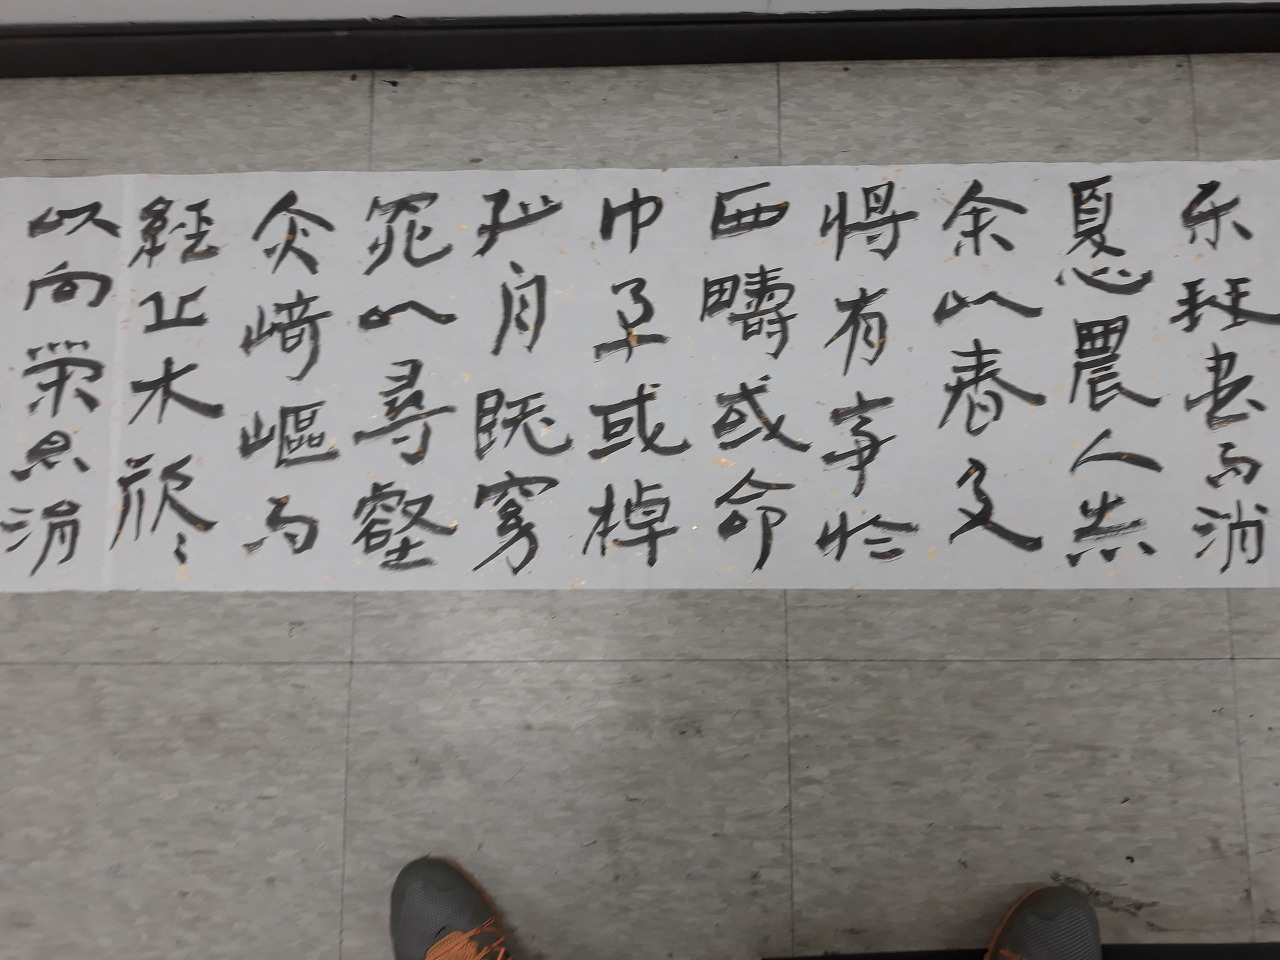 乐琴書而消
憂農人告
余以春及
將有事於
西疇或命
巾車或棹
孤舟既窈
窕以尋壑
亦崎嶇而
經丘木欣〻
以向榮泉涓